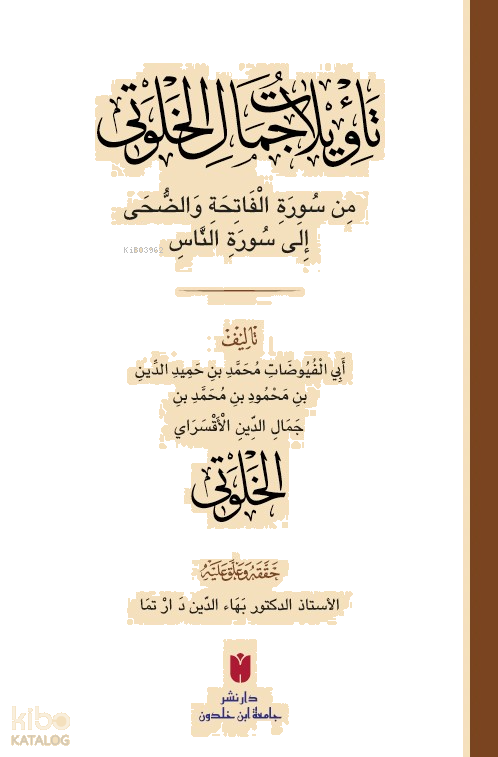 تَأْوِيلَاتُ جَمَالِ الْخَلْوَتِي
مِن سُورَةِ الْفَاتِحَةِ وَالضُّحَى
إِلى سُورَةِ النَّاسِ
KiB03962
تَأْلِيفُ
أَبِي الْفُيُوضَاتِ مُحَمَّدِ بنِ حَمِيدِ الدِّينِ
بنِ مَحْمُودِ بنِ مُحَمَّدِ بنِ
جَمَالِ الدِّينِ الْأَقْسَرَاي
الْخَلْوَتِي
حَقَّقَهُ وَعَلَّقَ عَلَيْهِ
الأستاذ الدكتور بَهَاء الدّين دَارْ تمَا
دار نشر
جامعة ابن خلدون
kibo
KATALOG